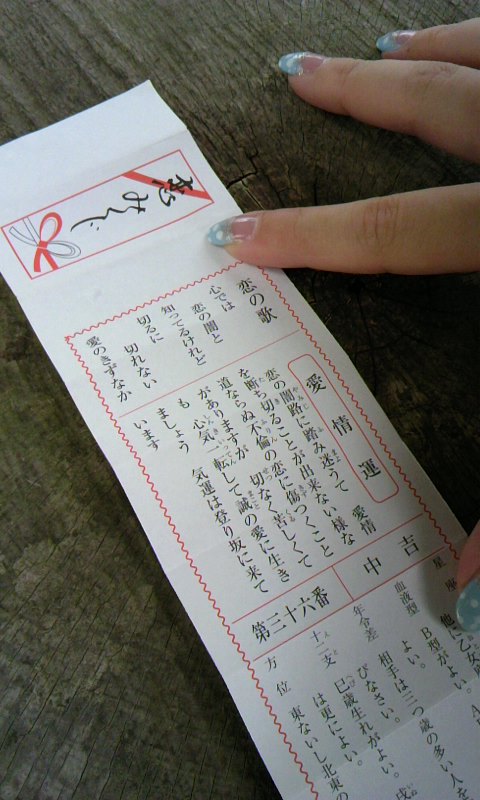 恋みくじ
恋の歌
心では
恋の闇と
知ってるけれど
切るに
切れない
愛のきずなか
愛情運
恋の闇路に踏み迷うて 愛情
を断ち切ることが出来ない様な
道ならぬ不倫の恋に傷つくこと
がありますが 切なく苦しくて
も 心気一転して誠の愛に生き
ましょう 気運は登り坂に来て
います
中吉
第三十六番
星座
他に乙女
血液型
B型がよい。
よい。
年令差
相手は三つ歳の多い人を
びなさい。
十二支
巳歳生れがよい。
は更によい。
方位 東ないし北東の